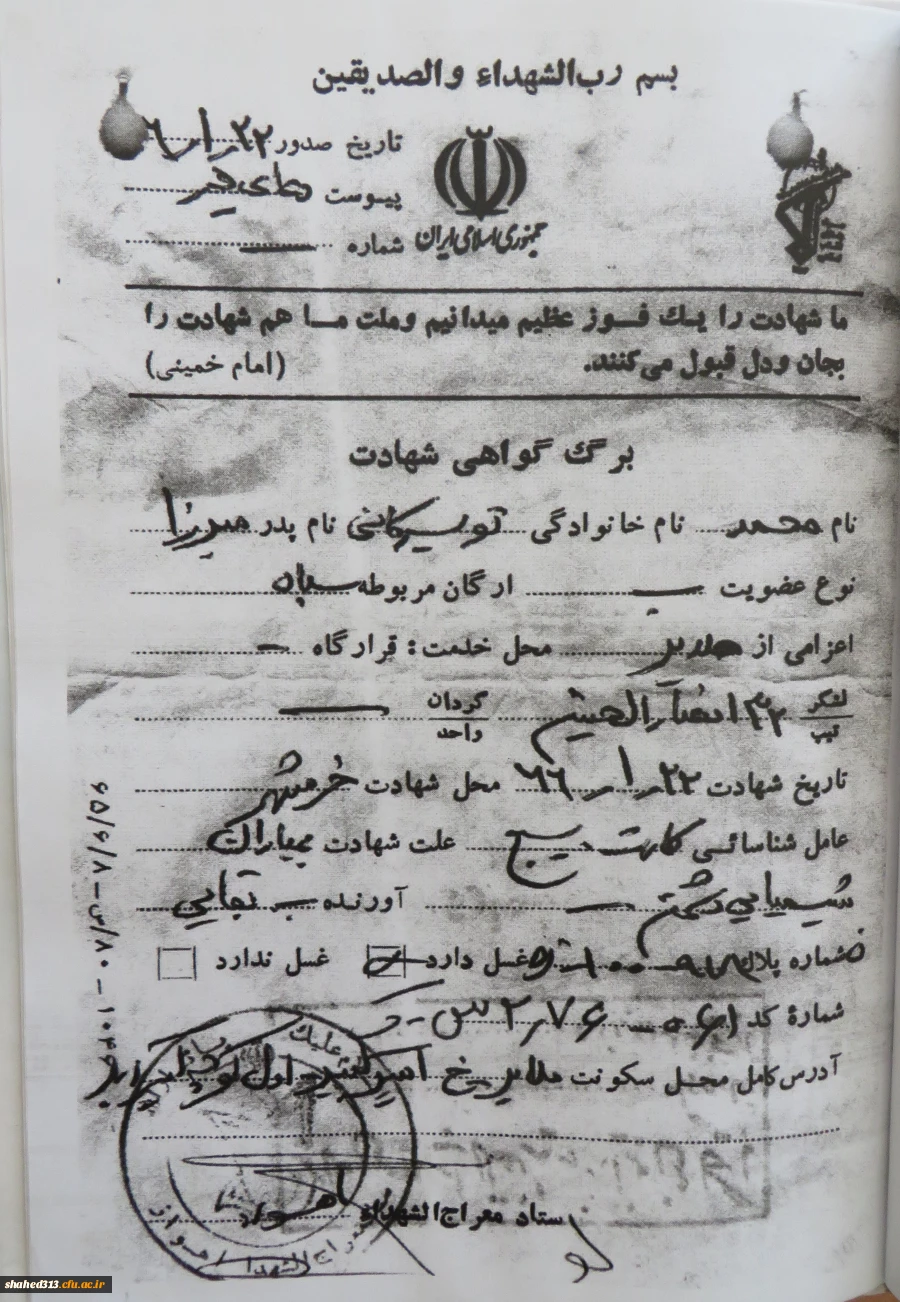 بسم رب‌الشهداء والصدیقین
تاریخ صدور ۲۲ر۱ر۶
پیوست
شماره
جمهوری اسلامی ایران
ما شهادت را یک فوز عظیم میدانیم وملت ما هم شهادت را
بجان ودل قبول می‌کنند. (امام خمینی)
برگ گواهی شهادت
نام محمد نام خانوادگی تویسرکانی نام پدر میرزا
نوع عضویت ارگان مربوطه سپاه
اعزامی از ملایر محل خدمت: قرارگاه
لشکر تیپ ۳۲ انصارالحسین گردان واحد
تاریخ شهادت ۲۲ر۱ر۶۶ محل شهادت خرمشهر
عامل شناسائی کارت بسیج علت شهادت بمباران
شیمیایی دشمن آورنده
شماره پلاک غسل دارد غسل ندارد
شمارهٔ کد
آدرس کامل محل سکونت ملایر خ امیرکبیر اول کوچه
ستاد معراج‌الشهداء اهواز
معراج الشهداء اهواز
۶۵/۶/۸-س/۸۰-۱۰۴۶
shahed313.cfu.ac.ir